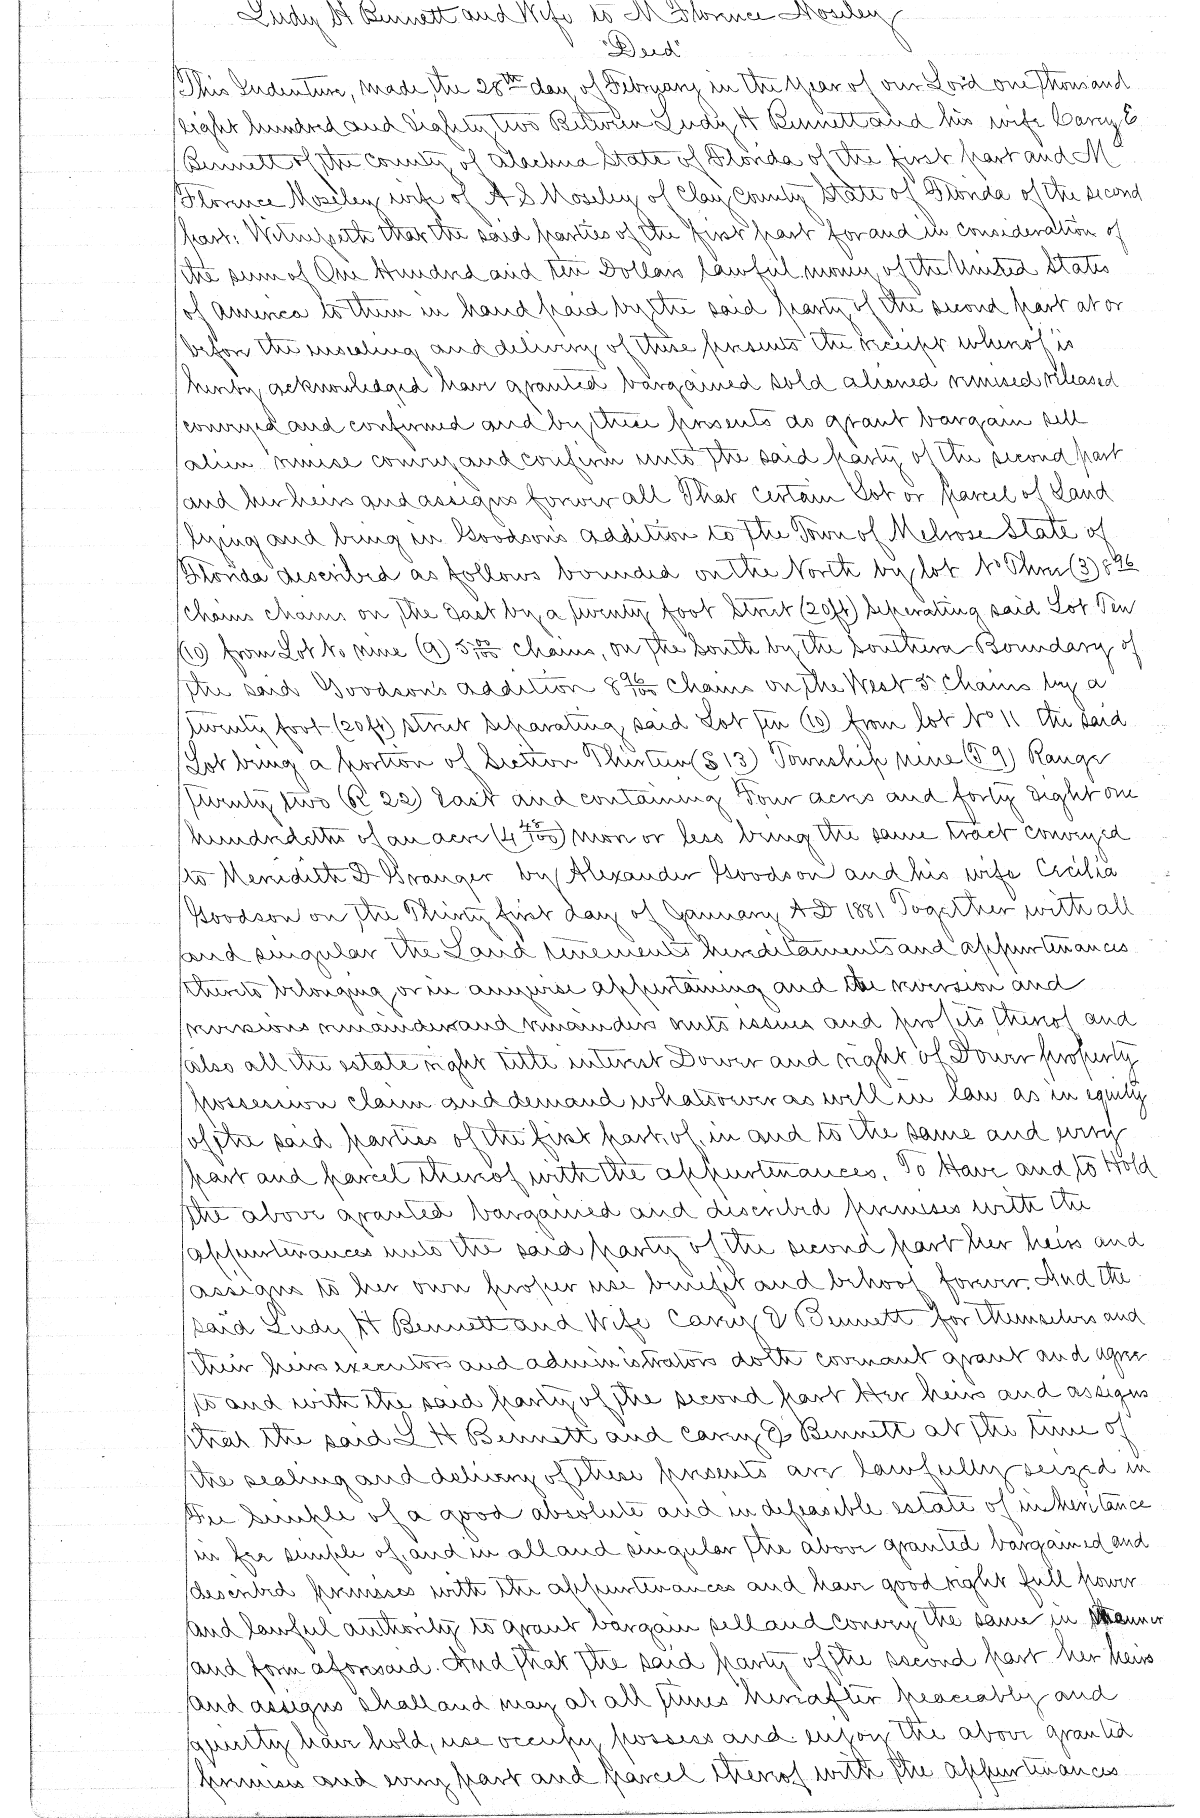 Ludy H Bennett and Wife to M Florence Moseley
"Deed"
This Indenture, made the 28th day of February in the Year of our Lord one thousand
eight hundred and Eighty two Between Ludy H Bennett and his wife Carey E
Bennett of the county of Alachua State of Florida of the first part and M
Florence Moseley wife of A S Moseley of Clay County State of Florida of the second
part: Witnesseth that the said parties of the first part for and in consideration of
the sum of One Hundred and ten Dollars lawful money of the United States
of America to them in hand paid by the said party of the second part at or
before the ensealing and delivery of these presents the receipt whereof is
hereby acknowledged have granted bargained sold aliened remised released
conveyed and confirmed and by these presents do grant bargain sell
alien remise convey and confirm unto the said party of the second part
and her heirs and assigns forever all That certain Lot or parcel of Land
lying and being in Goodson's addition to the Town of Melrose State of
Florida described as follows bounded on the North by lot No Three (3) 8 96
chains chains on the East by a twenty foot Street (20ft) Seperating said Lot Ten
(10) from Lot No nine (9) 5 00/100 chains, on the South by the Southern Boundary of
the said Goodson's addition 8 96/100 Chains on the West 5 Chains by a
twenty foot (20ft) street Separating said Lot ten (10) from lot No 11 the said
Lot being a portion of Section Thirteen (S 13) Township nine (T 9) Range
twenty two (R 22) East and containing Four acres and forty Eight one
hundredths of an acre (4 48/100) more or less being the same tract conveyed
to Meredith D Granger by Alexander Goodson and his wife Cecilia
Goodson on the Thirty first day of January A D 1881 Together with all
and singular the Land tenements hereditaments and appurtenances
thereto belonging or in anywise appertaining and the reversion and
reversions remainder and remainders rents issues and profits thereof and
also all the estate right title interest Dower and right of Dower property
possession claim and demand whatsoever as well in law as in equity
of the said parties of the first part, of, in and to the same and every
part and parcel thereof with the appurtenances. To Have and to Hold
the above granted bargained and described premises with the
appurtenances unto the said party of the second part her heirs and
assigns to her own proper use benefit and behoof forever. And the
said Ludy H Bennett and Wife Carey E Bennett for themselves and
their heirs executors and administrators doth covenant grant and agree
to and with the said party of the second part Her heirs and assigns
that the said L H Bennett and Carey E Bennett at the time of
the sealing and delivery of these presents are lawfully seized in
Fee Simple of a good absolute and indefeasible estate of inheritance
in fee simple of, and in all and singular the above granted bargained and
described premises with the appurtenances and have good right full power
and lawful authority to grant bargain sell and convey the same in manner
and form aforesaid. And that the said party of the second part her heirs
and assigns shall and may at all times hereafter peaceably and
quietly have hold, use occupy possess and enjoy the above granted
premises and every part and parcel thereof with the appurtenances